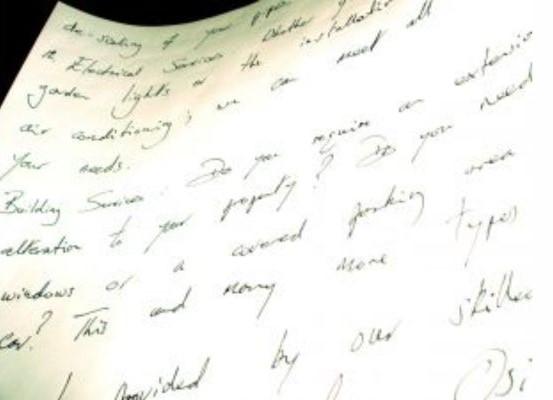 de-scaling of your pipes
Electrical Services. Whether
garden lights or the installation
air conditioning; we can meet all
your needs.
Building Services: Do you require an extensio
alteration to your property? Do you need
windows or a covered parking area
car? This and many more types
provided by our skilled